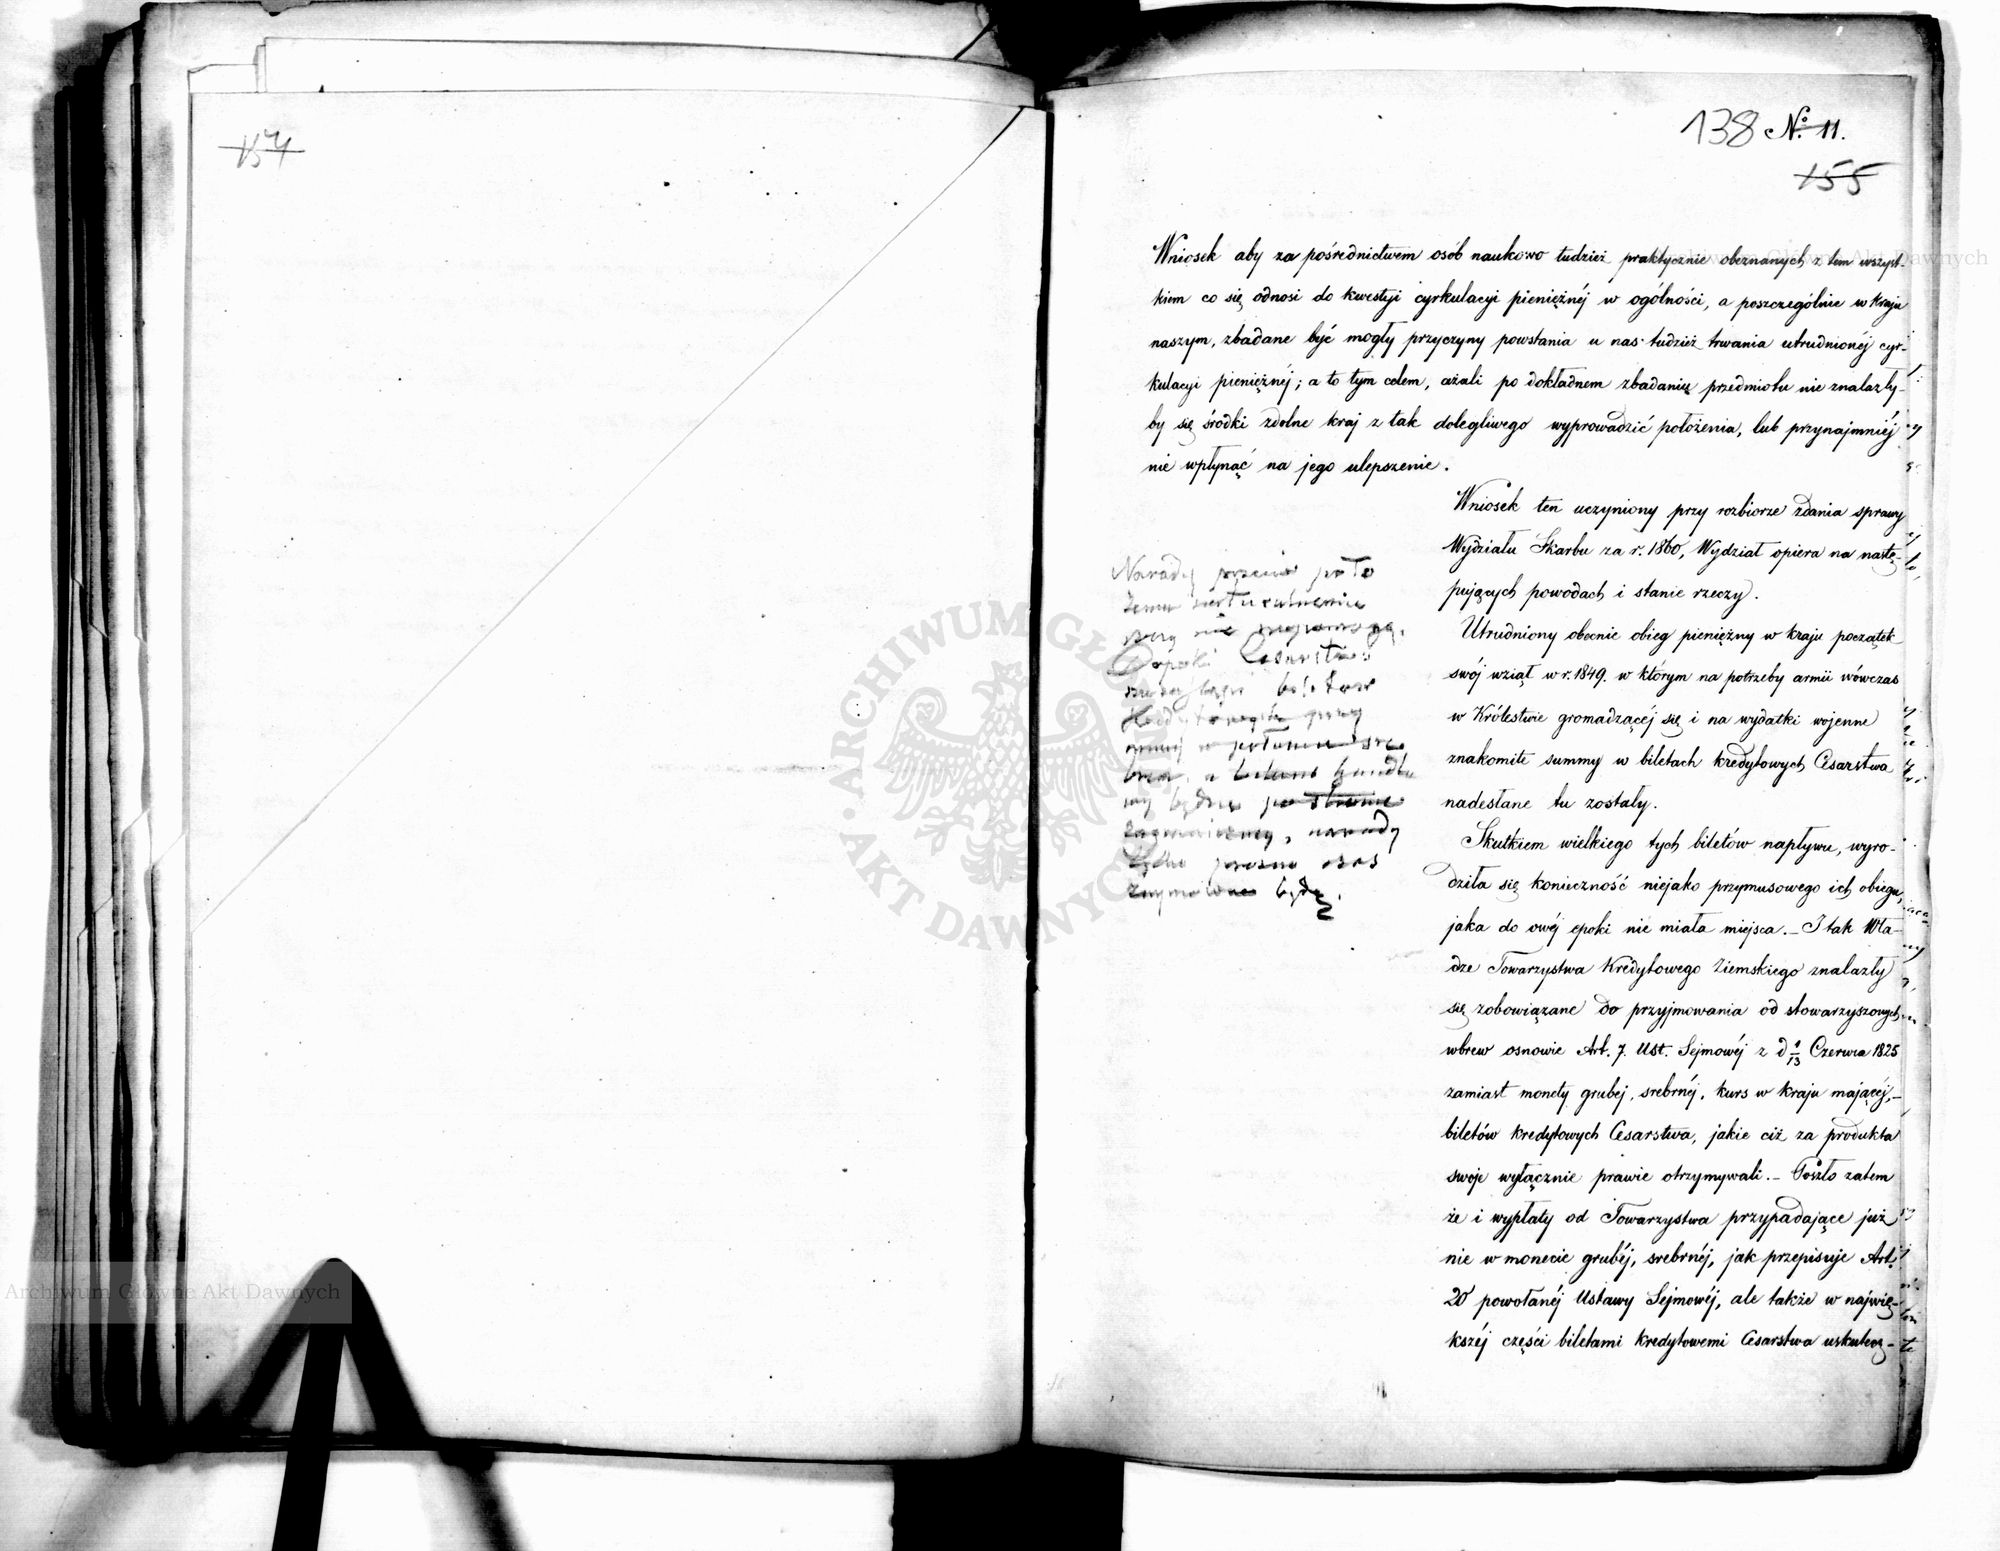 154
138 No. 11.
155
Wniosek aby za pośrednictwem osób naukowo tudzież praktycznie obeznanych z tem wszyst-
kiem co się odnosi do kwestyi cyrkulacyi pieniężnéj w ogólności, a poszczególnie w kraju
naszym, zbadane być mogły przyczyny powstania u nas tudzież trwania utrudnionéj cyr-
kulacyi pieniężnéj; a to tym celem, ażali po dokładnem zbadaniu przedmiotu nie znalazły-
by się środki zdolne kraj z tak dolegliwego wyprowadzić położenia, lub przynajmniéj
nie wpłynąć na jego ulepszenie.
Wniosek ten uczyniony przy rozbiorze zdania sprawy
Wydziału Skarbu za r. 1860, Wydział opiera na nastę-
pujących powodach i stanie rzeczy.
Utrudniony obecnie obieg pieniężny w kraju początek
swój wziął w r. 1849. w którym na potrzeby armii wówczas
w Królestwie gromadzącéj się i na wydatki wojenne
znakomite summy w biletach kredytowych Cesarstwa
nadesłane tu zostały.
Skutkiem wielkiego tych biletów napływu, wyro-
dziła się konieczność niejako przymusowego ich obiegu,
jaka do owéj epoki nie miała miejsca. – I tak Wła-
dze Towarzystwa Kredytowego Ziemskiego znalazły
się zobowiązane do przyjmowania od stowarzyszonych
wbrew osnowie Art. 7. Ust. Sejmowéj z d 1/13 Czerwca 1825
zamiast monety grubej, srebrnéj, kurs w kraju mającéj, –
biletów kredytowych Cesarstwa, jakie ciż za produkta
swoje wyłącznie prawie otrzymywali. – Poszło zatem
że i wypłaty od Towarzystwa przypadające już
nie w monecie grubéj, srebrnéj, jak przepisuje Art.
20 powołanéj Ustawy Sejmowéj, ale także w najwię-
kszéj części biletami kredytowemi Cesarstwa uskutecz-
Narady przeciw poło
żemu
nie
Dopóki Cesarstwo
biletów
Kredytowych przy
a bilans handlo
wy będzie po stronie
zagranicznej, narady
próżno czas
będą.
ARCHIWUM GŁÓWNE AKT DAWNYCH
Archiwum Główne Akt Dawnych
Archiwum Główne Akt Dawnych